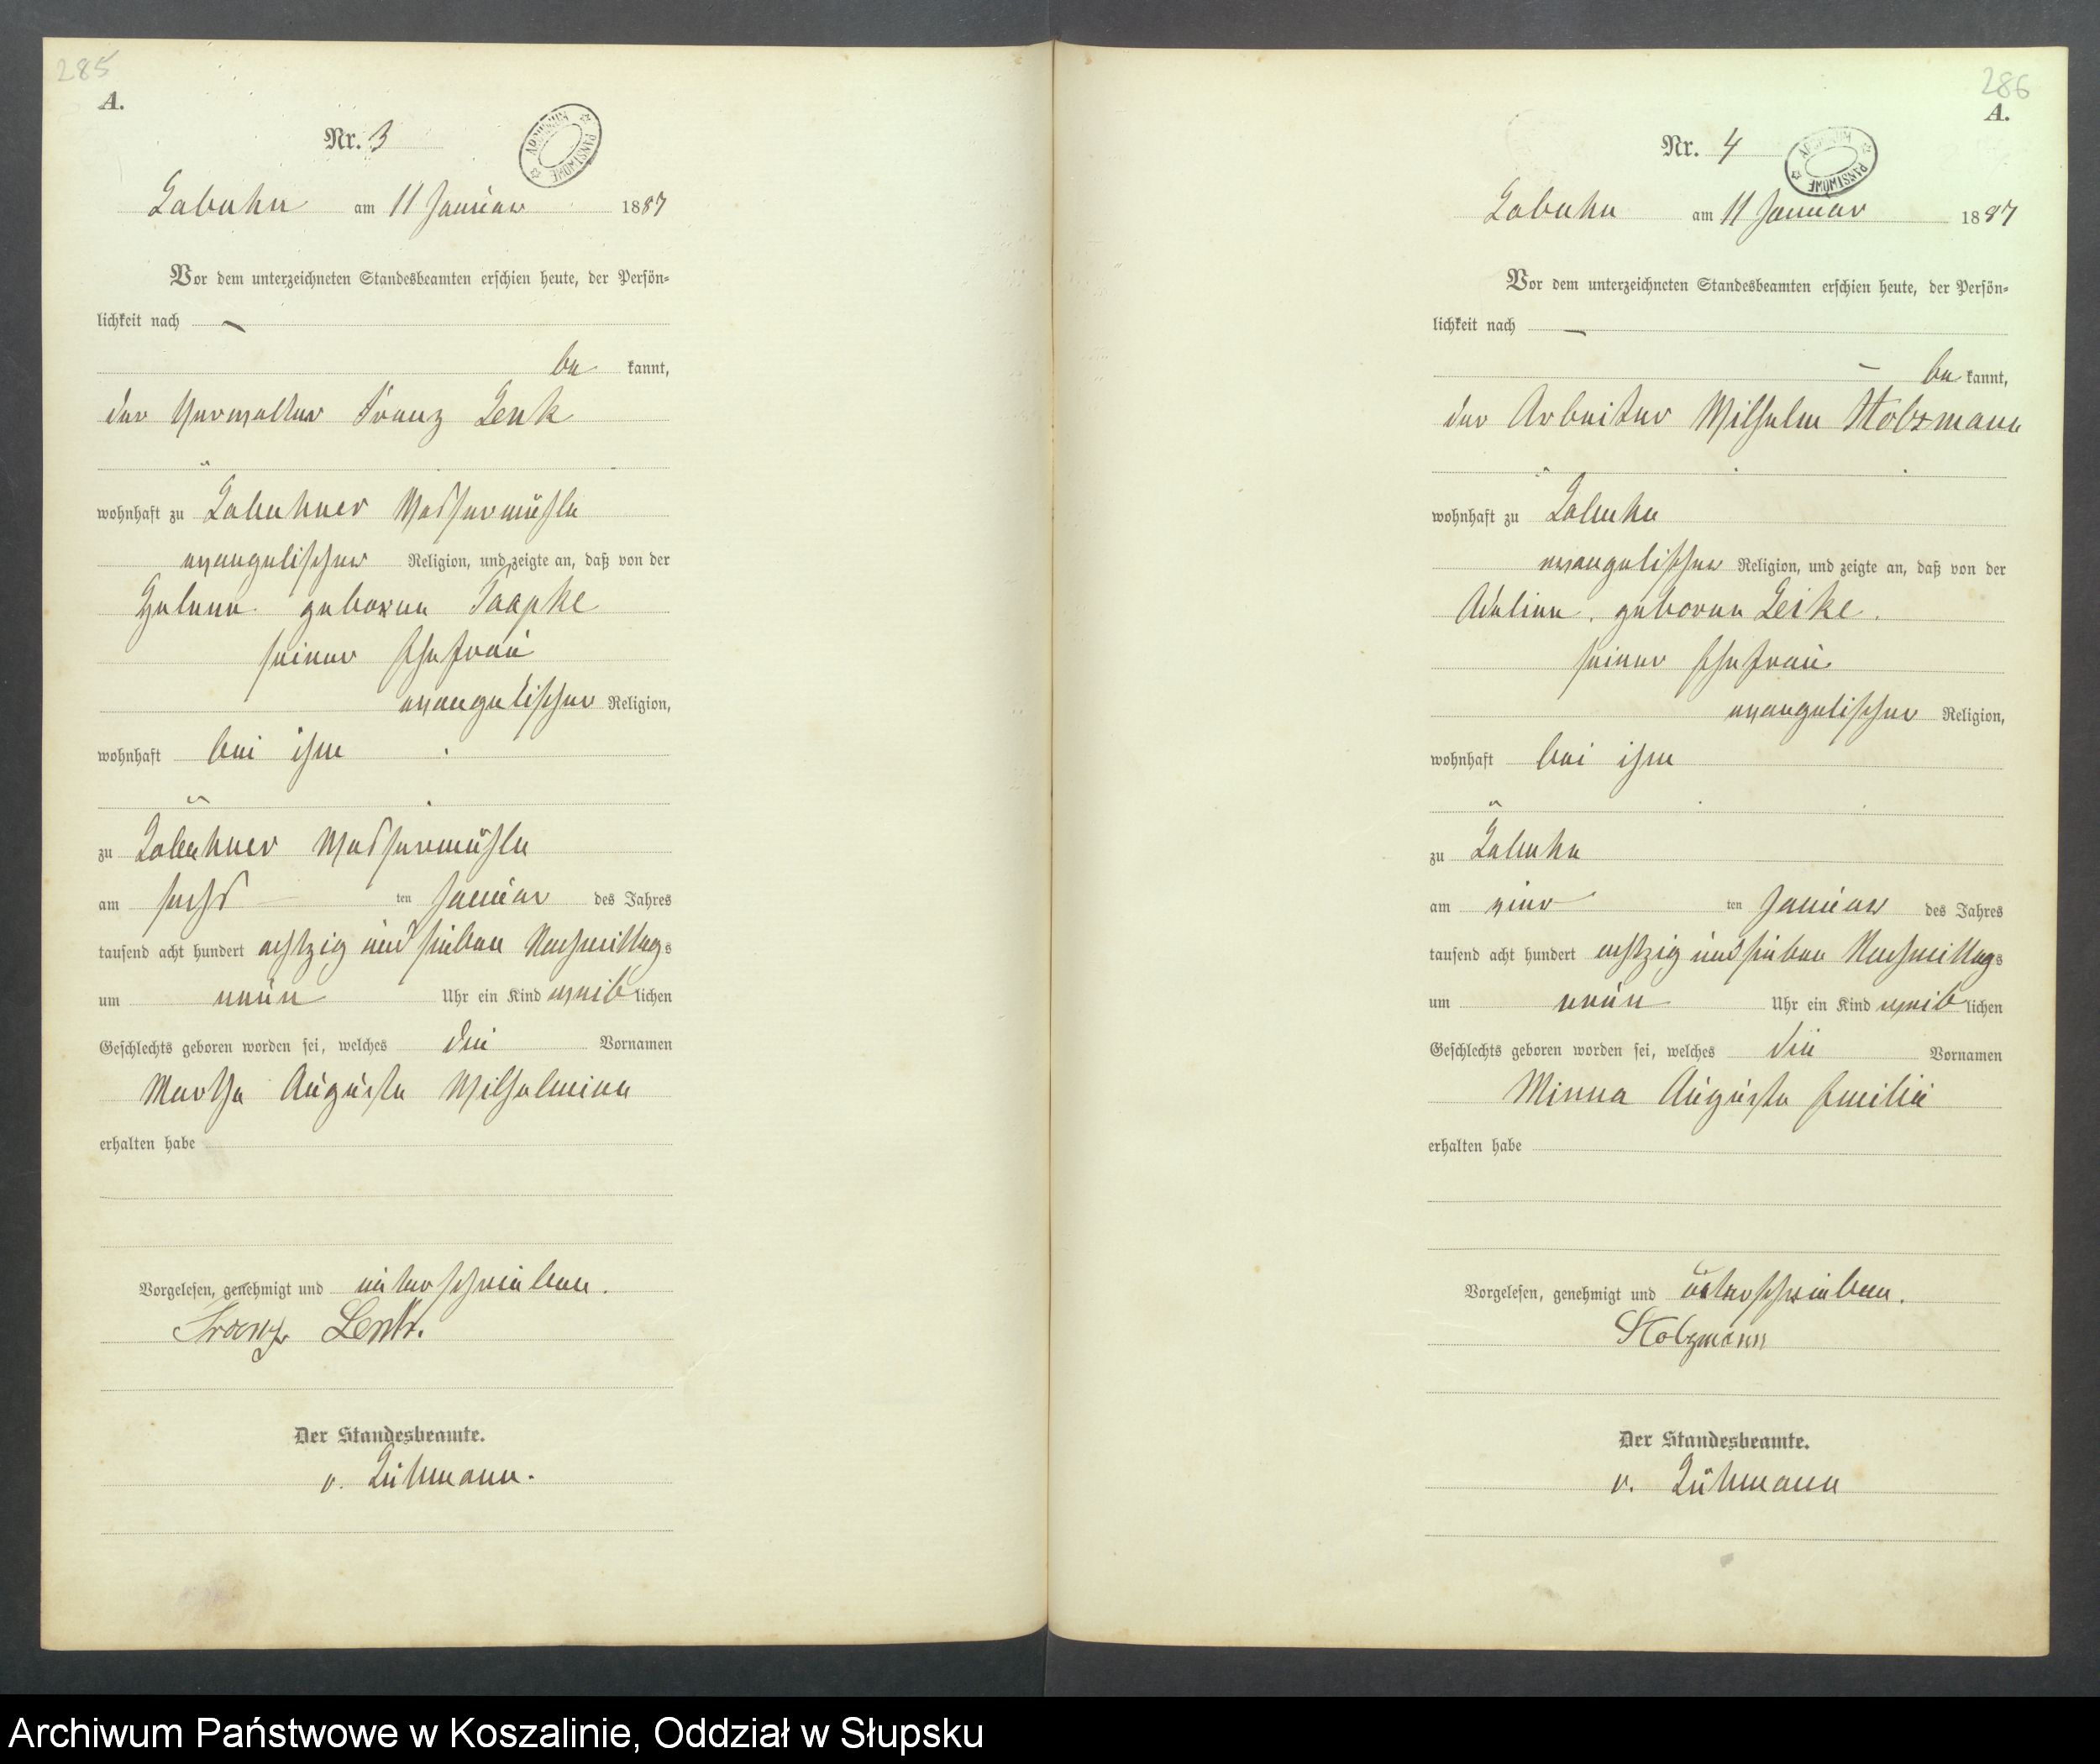 285
A.
Nr. 3
ARCHIWUM PAŃSTWOWE
Labuhn am 11 Januar 1887
Vor dem unterzeichneten Standesbeamten erschien heute, der Persön-
lichkeit nach
be kannt,
der Verwalter Franz Lenk
wohnhaft zu Labuhner Wassermühle
evangelischer Religion, und zeigte an, daß von der
Helene geborene Taapke
seiner Ehefrau
evangelischer Religion,
wohnhaft bei ihm
zu Labuhner Wassermühle
am sechs ten Januar des Jahres
tausend acht hundert achtzig und sieben Nachmittags
um neun Uhr ein Kind weiblichen
Geschlechts geboren worden sei, welches die Vornamen
Martha Auguste Wilhelmine
erhalten habe
Vorgelesen, genehmigt und unterschrieben.
Franz Lenk.
Der Standesbeamte.
v. Lühmann.
286
A.
Nr. 4
ARCHIWUM PAŃSTWOWE
Labuhn am 11 Januar 1887
Vor dem unterzeichneten Standesbeamten erschien heute, der Persön-
lichkeit nach
be kannt,
der Arbeiter Wilhelm Stolzmann
wohnhaft zu Labuhn
evangelischer Religion, und zeigte an, daß von der
Adeline geborene Leike.
seiner Ehefrau
evangelischer Religion,
wohnhaft bei ihm
zu Labuhn
am vier ten Januar des Jahres
tausend acht hundert achtzig und sieben Nachmittags
um neun Uhr ein Kind weiblichen
Geschlechts geboren worden sei, welches die Vornamen
Minna Auguste Emilie
erhalten habe
Vorgelesen, genehmigt und unterschrieben.
Stolzmann
Der Standesbeamte.
v. Lühmann
Archiwum Państwowe w Koszalinie, Oddział w Słupsku